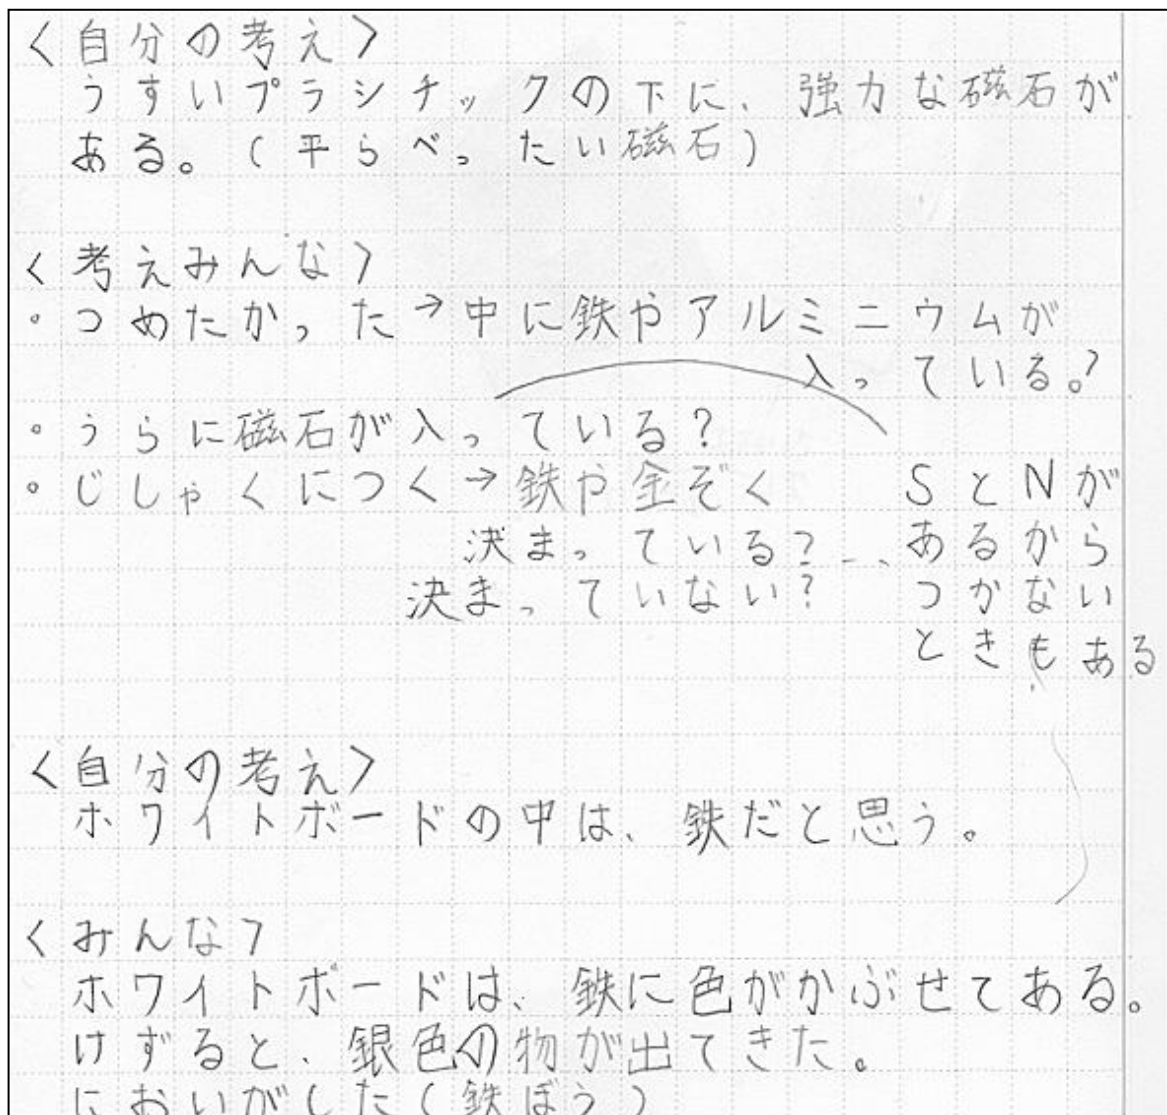 〈自分の考え〉
うすいプラシチックの下に、強力な磁石が
ある。(平らべったい磁石)
〈考えみんな〉
・つめたかった→中に鉄やアルミニウムが
入っている。?
・うらに磁石が入っている?
・じしゃくにつく→鉄や金ぞく
決まっている?…
決まっていない?
SとNが
あるから
つかない
ときもある
〈自分の考え〉
ホワイトボードの中は、鉄だと思う。
〈みんな〉
ホワイトボードは、鉄に色がかぶせてある。
けずると、銀色の物が出てきた。
においがした(鉄ぼう)